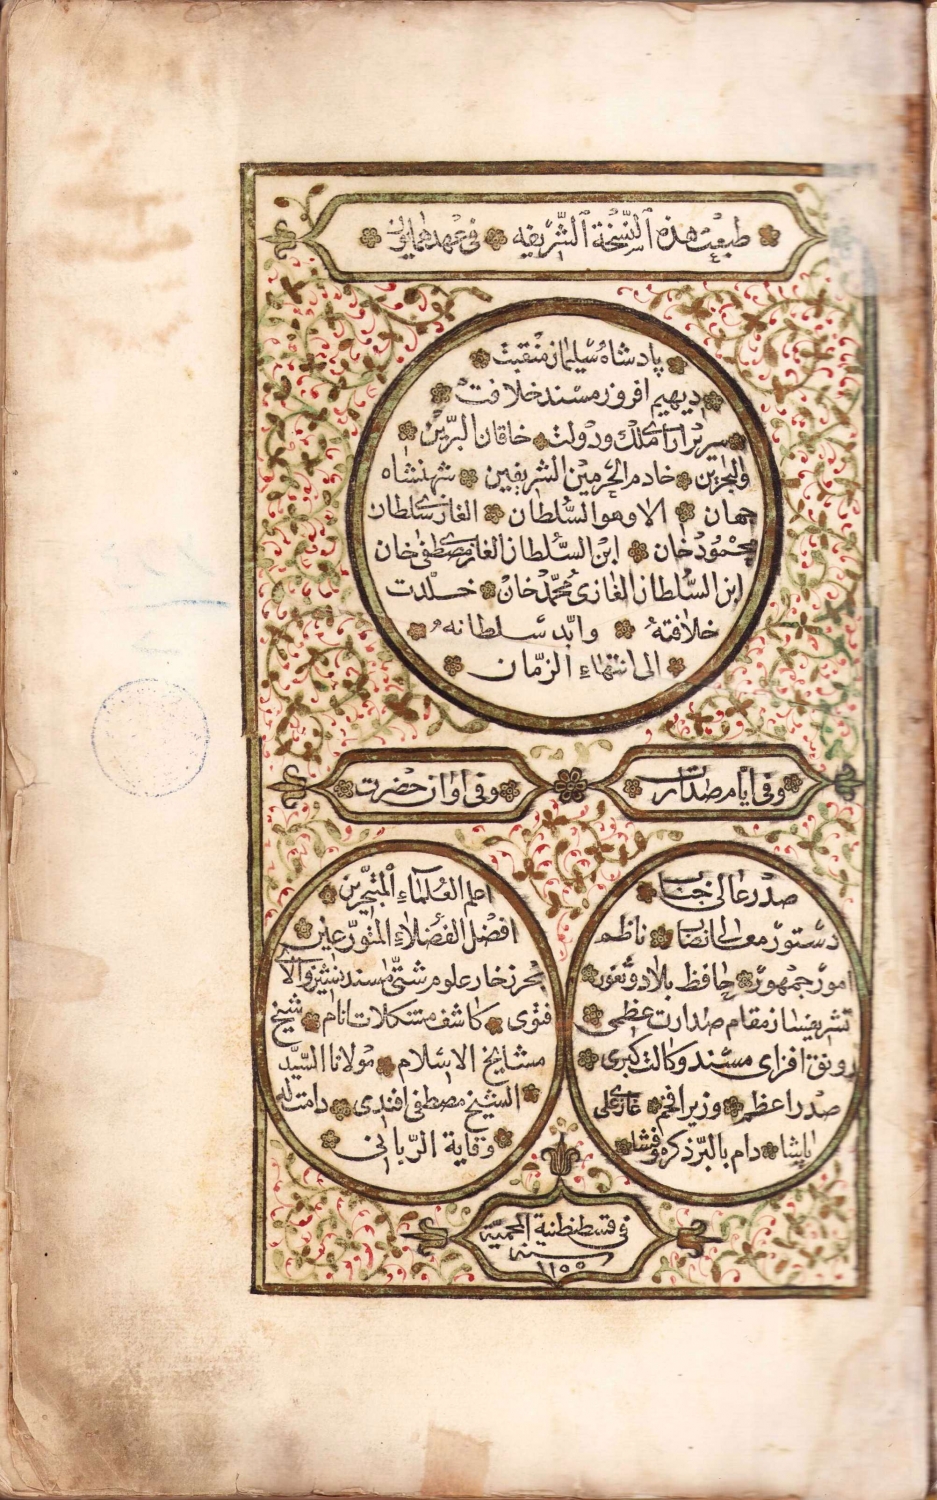 طبعت هذه النسخة الشريفه في عهد همايون
پادشاه سليمان منقبت
ديهيم افروز مسند خلافت
سرير اراى ملك ودولت خاقان البرّين
والبحرين خادم الحرمين الشريفين شهنشاه
جهان الا وهو السّلطان الغازى سلطان
محمود خان ابن السّلطان الغازى مصطفى خان
ابن السّلطان الغازى محمّد خان خلدت
خلافته وابّد سلطانه
الى انتهاء الزمان
وفى ايام صدارت
صدر عالى جناب
دستور معالى انصاب ناظم
امور جمهور حافظ بلاد وثغور
تشريفساز مقام صدارت عظمى
رونق افزاى مسند وكالت كبرى
صدر اعظم وزير افخم غازى على
پاشا دام بالبرّ ذكره وفشا
وفى اوان حضرت
اعلم العلمآء المتبحّرين
افضل الفضلاء المتورّعين
بحر زخار علوم شتّى مسند نشين والاى
فتوى كاشف مشكلات انام شيخ
مشايخ الاسلام مولانا السيّد
الشيخ مصطفى افندى دامت له
وقاية الربانى
فى قسطنطنية المحمية
سنه
١١٥٥